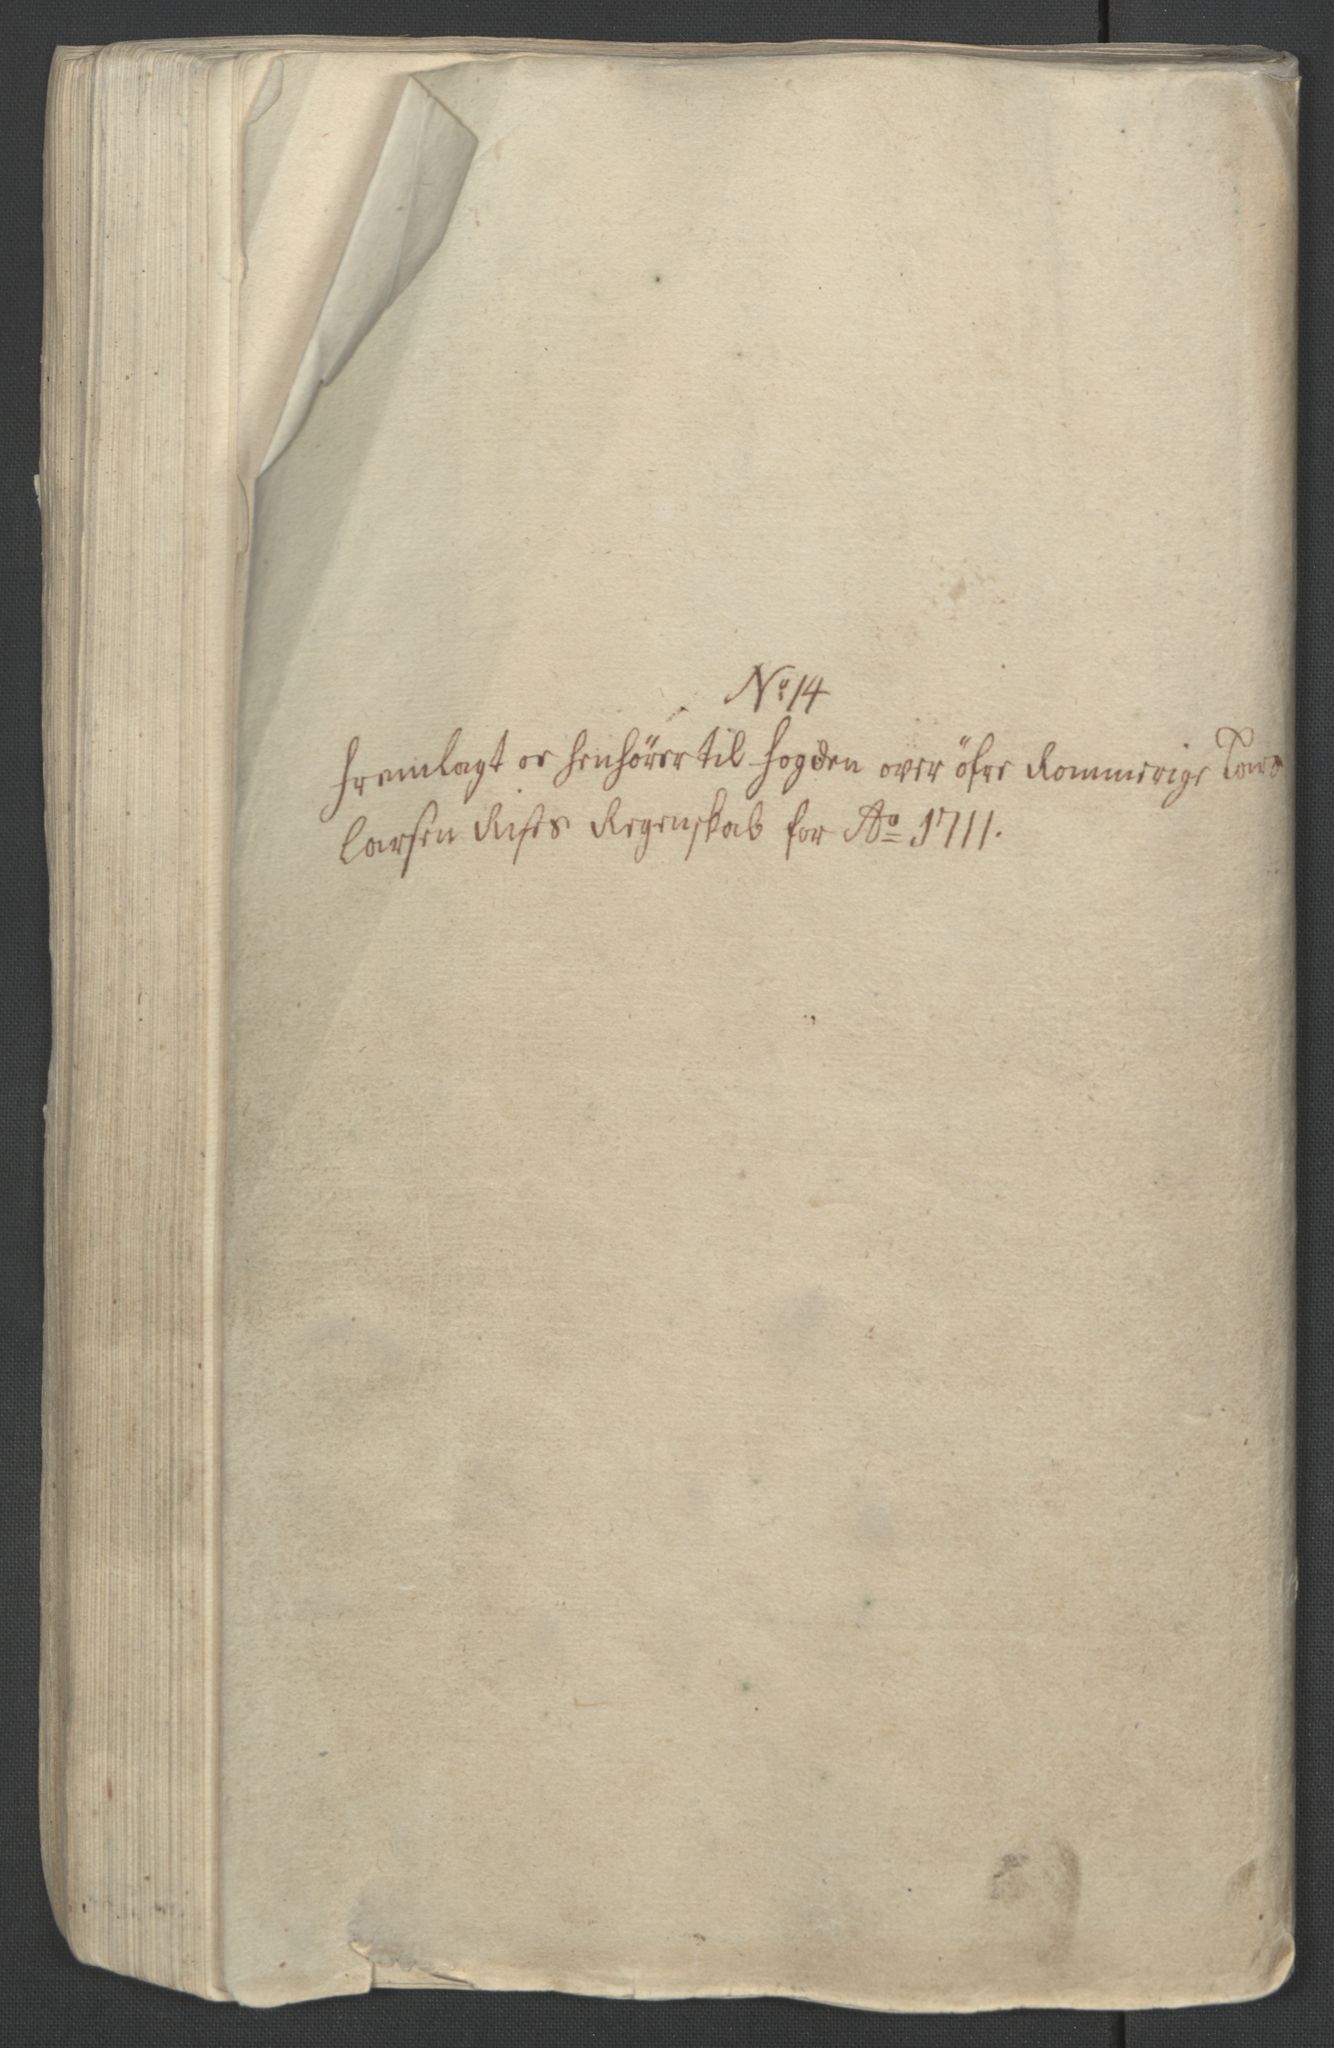 No 14
fremlagt og henhörer til fogden over öfre Rommerige Lars
Larsen Rises Regenskab for Ao 1711.